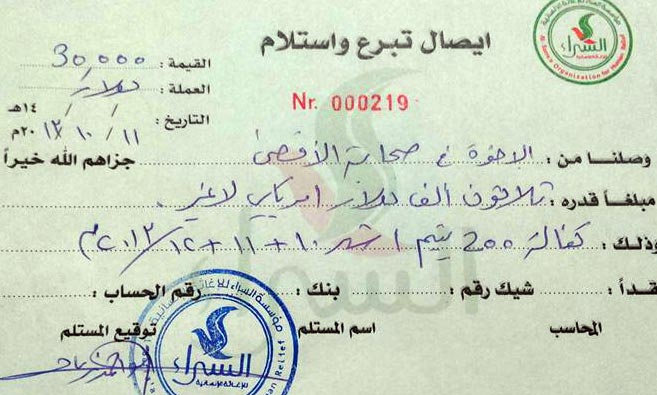 ايصال تبرع واستلام
مؤسسة السراء للإغاثة الإنسانية
السراء
Al Sarraa Organization for Human Relief
القيمة : 30,000
العملة : دولار
Nr. 000219
التاريخ : / / ١٤هـ
١١/ ١٠/ ٢٠١٣م
وصلنا من : الاخوة في صحابة الأقصى جزاهم الله خيراً
مبلغاً قدره : ثلاثون ألف دولار امريكي لاغير .
وذلك : كفالة 200 يتيم اشهر ١٠ + ١١ + ١٢/٢٠١٣م
نقداً : شيك رقم : بنك : رقم الحساب :
المحاسب اسم المستلم توقيع المستلم
مؤسسة السراء للإغاثة الإنسانية
السراء
للإغاثة الإنسانية